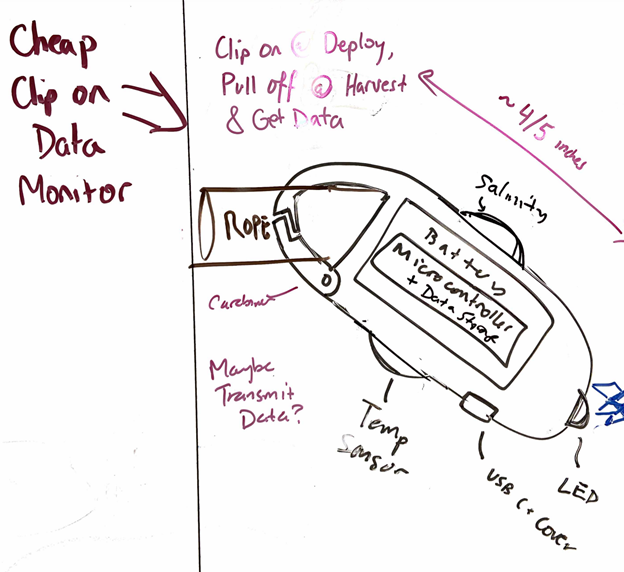 Cheap
Clip on
Data
Monitor
Clip on @ Deploy,
Pull off @ Harvest
& Get Data
~ 4/5 inches
Salinity
ROPE
Battery
Microcontroller
+ Data Storage
Maybe
Transmit
Data?
Temp
Sensor
USB C + Cover
LED